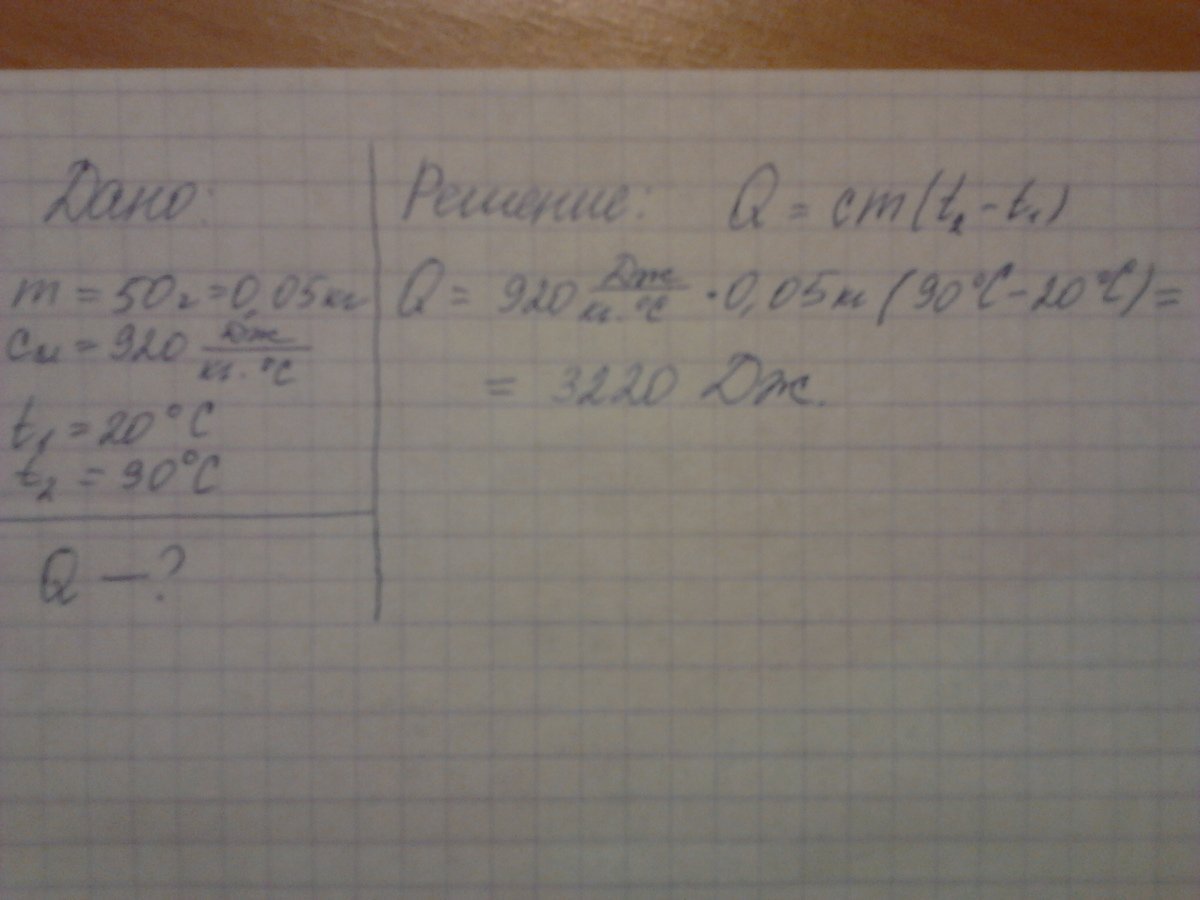 Дано:
m = 50г = 0,05 кг
cм = 920 Дж/кг·°C
t₁ = 20°C
t₂ = 90°C
Q — ?
Решение: Q = cm(t₂ - t₁)
Q = 920 Дж/кг·°C · 0,05 кг (90°C - 20°C) =
= 3220 Дж.